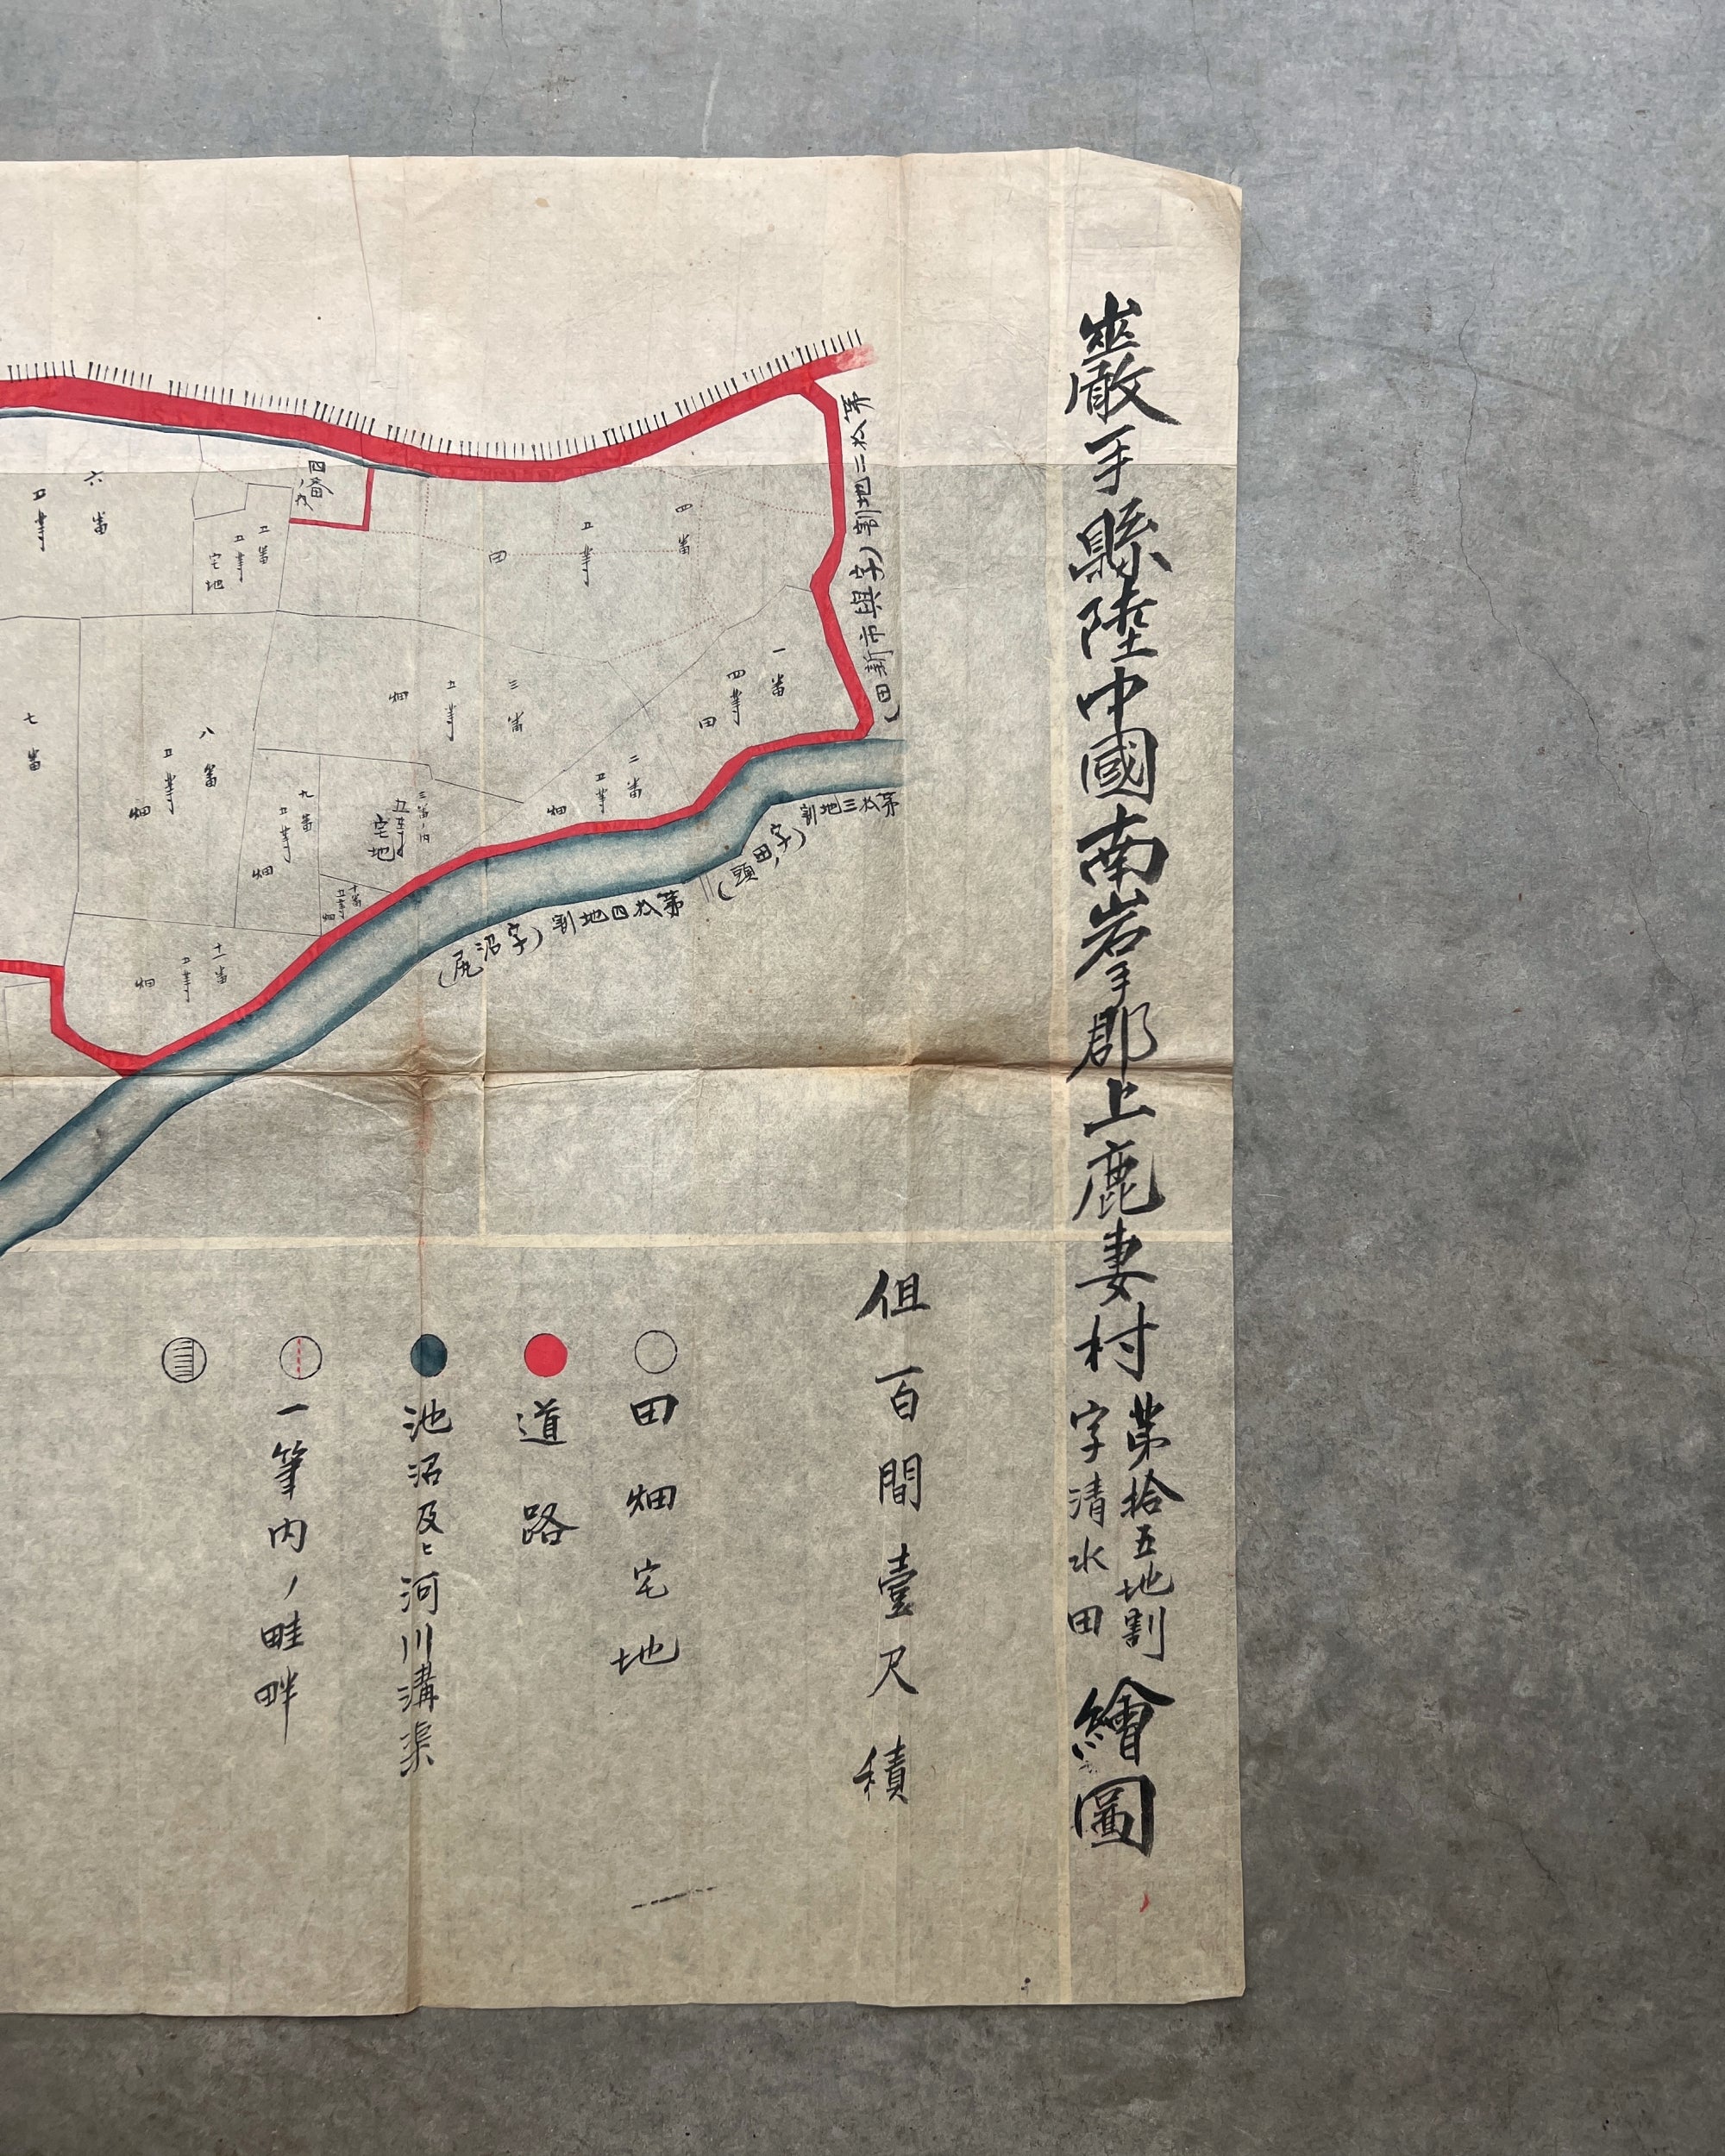 巖手縣陸中國南岩手郡上鹿妻村
第拾五地割
字清水田
繪圖
但百間壹尺積
田畑宅地
道路
池沼及ヒ河川溝渠
一筆内ノ畦畔
第拾二地割(字與市新田)
第拾三地割
(字田頭)
第拾四地割(字沼尻)
一番
四等
田
二番
五等
畑
三番
五等
畑
三番ノ内
五等
宅地
四番
五等
田
四番
五番
五等
宅地
六番
五等
七番
八番
五等
畑
九番
五等
畑
十番
五等
畑
十一番
五等
畑